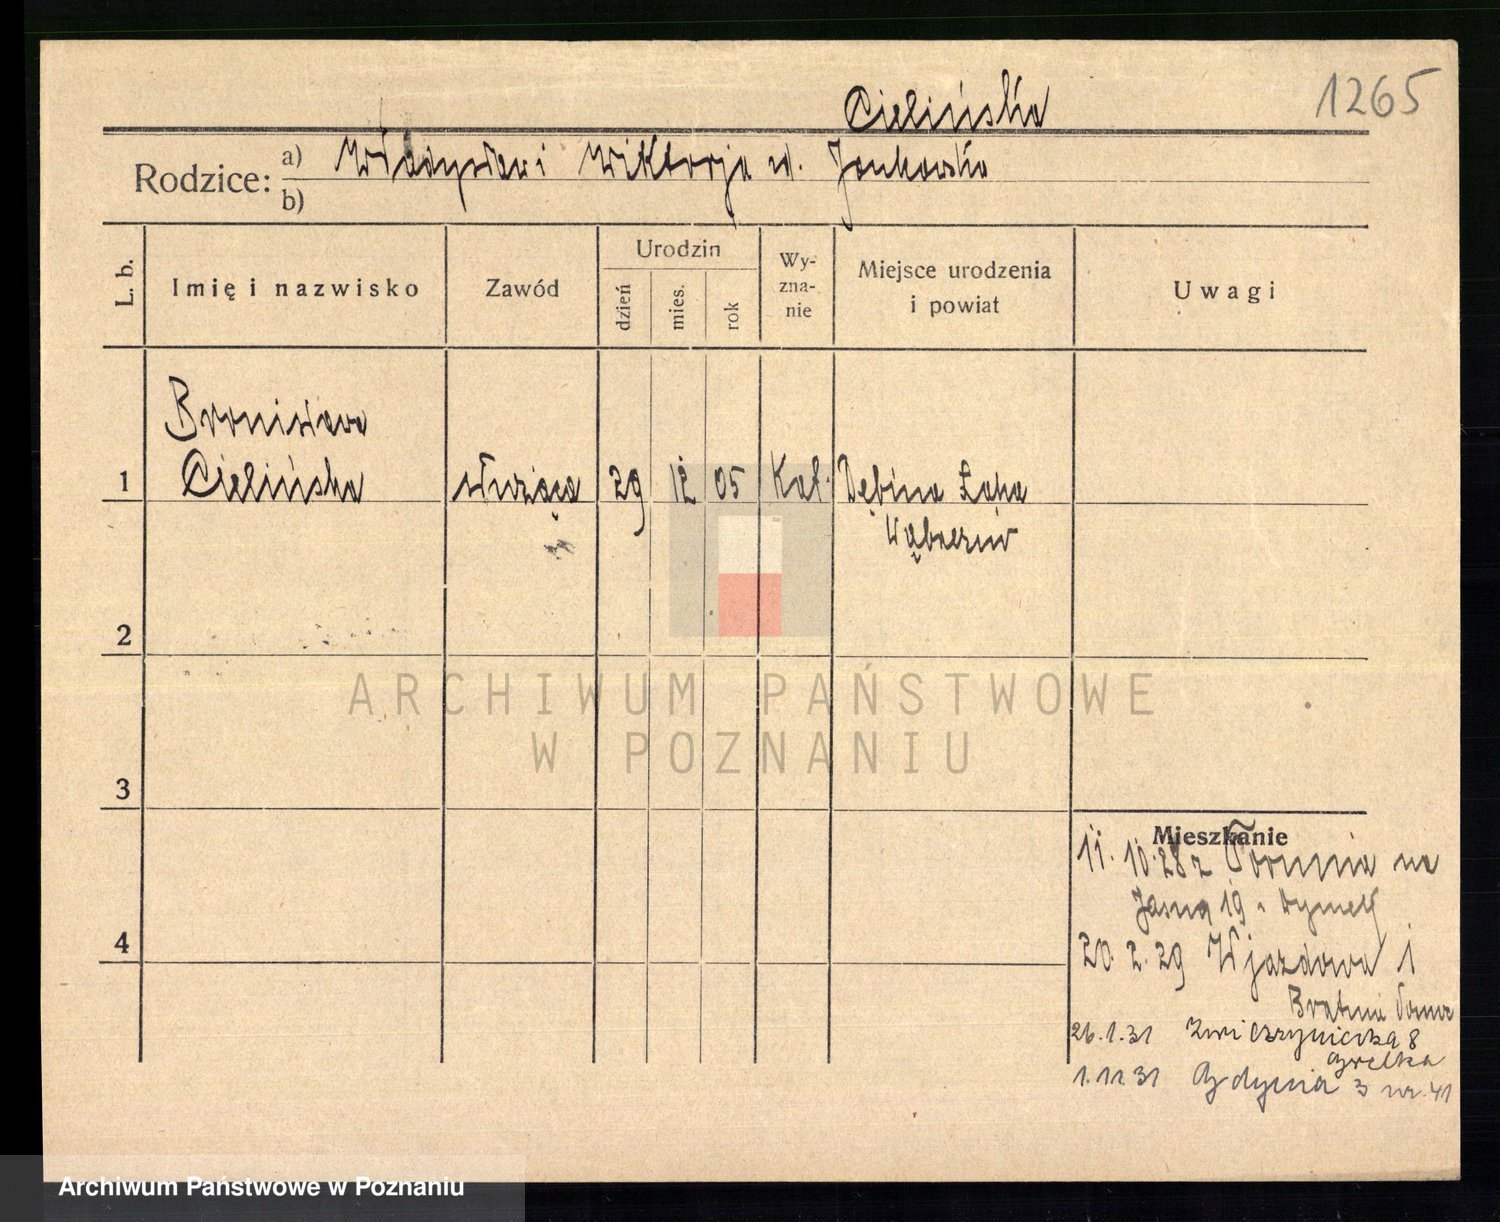 1265
Cielińska
Rodzice: a) Władysław i Wiktorja u. Jankowska
b)
L. b.
Imię i nazwisko
Zawód
Urodzin
dzień
mies.
rok
Wy-
zna-
nie
Miejsce urodzenia
i powiat
Uwagi
Bronisława
1 Cielińska służąca 29 12 05 Kat. Dębina Łąka
Wąbrzeźno
2
ARCHIWUM PAŃSTWOWE
W POZNANIU
3
Mieszkanie
11.10.28 z Torunia na
Jasna 19
4
20.2.29 Wjazdowa 1
Bratnia Pomoc
26.1.31 Zwierzyniecka 8
Grelka
1.11.31 Gdynia 3 nr. 41
Archiwum Państwowe w Poznaniu